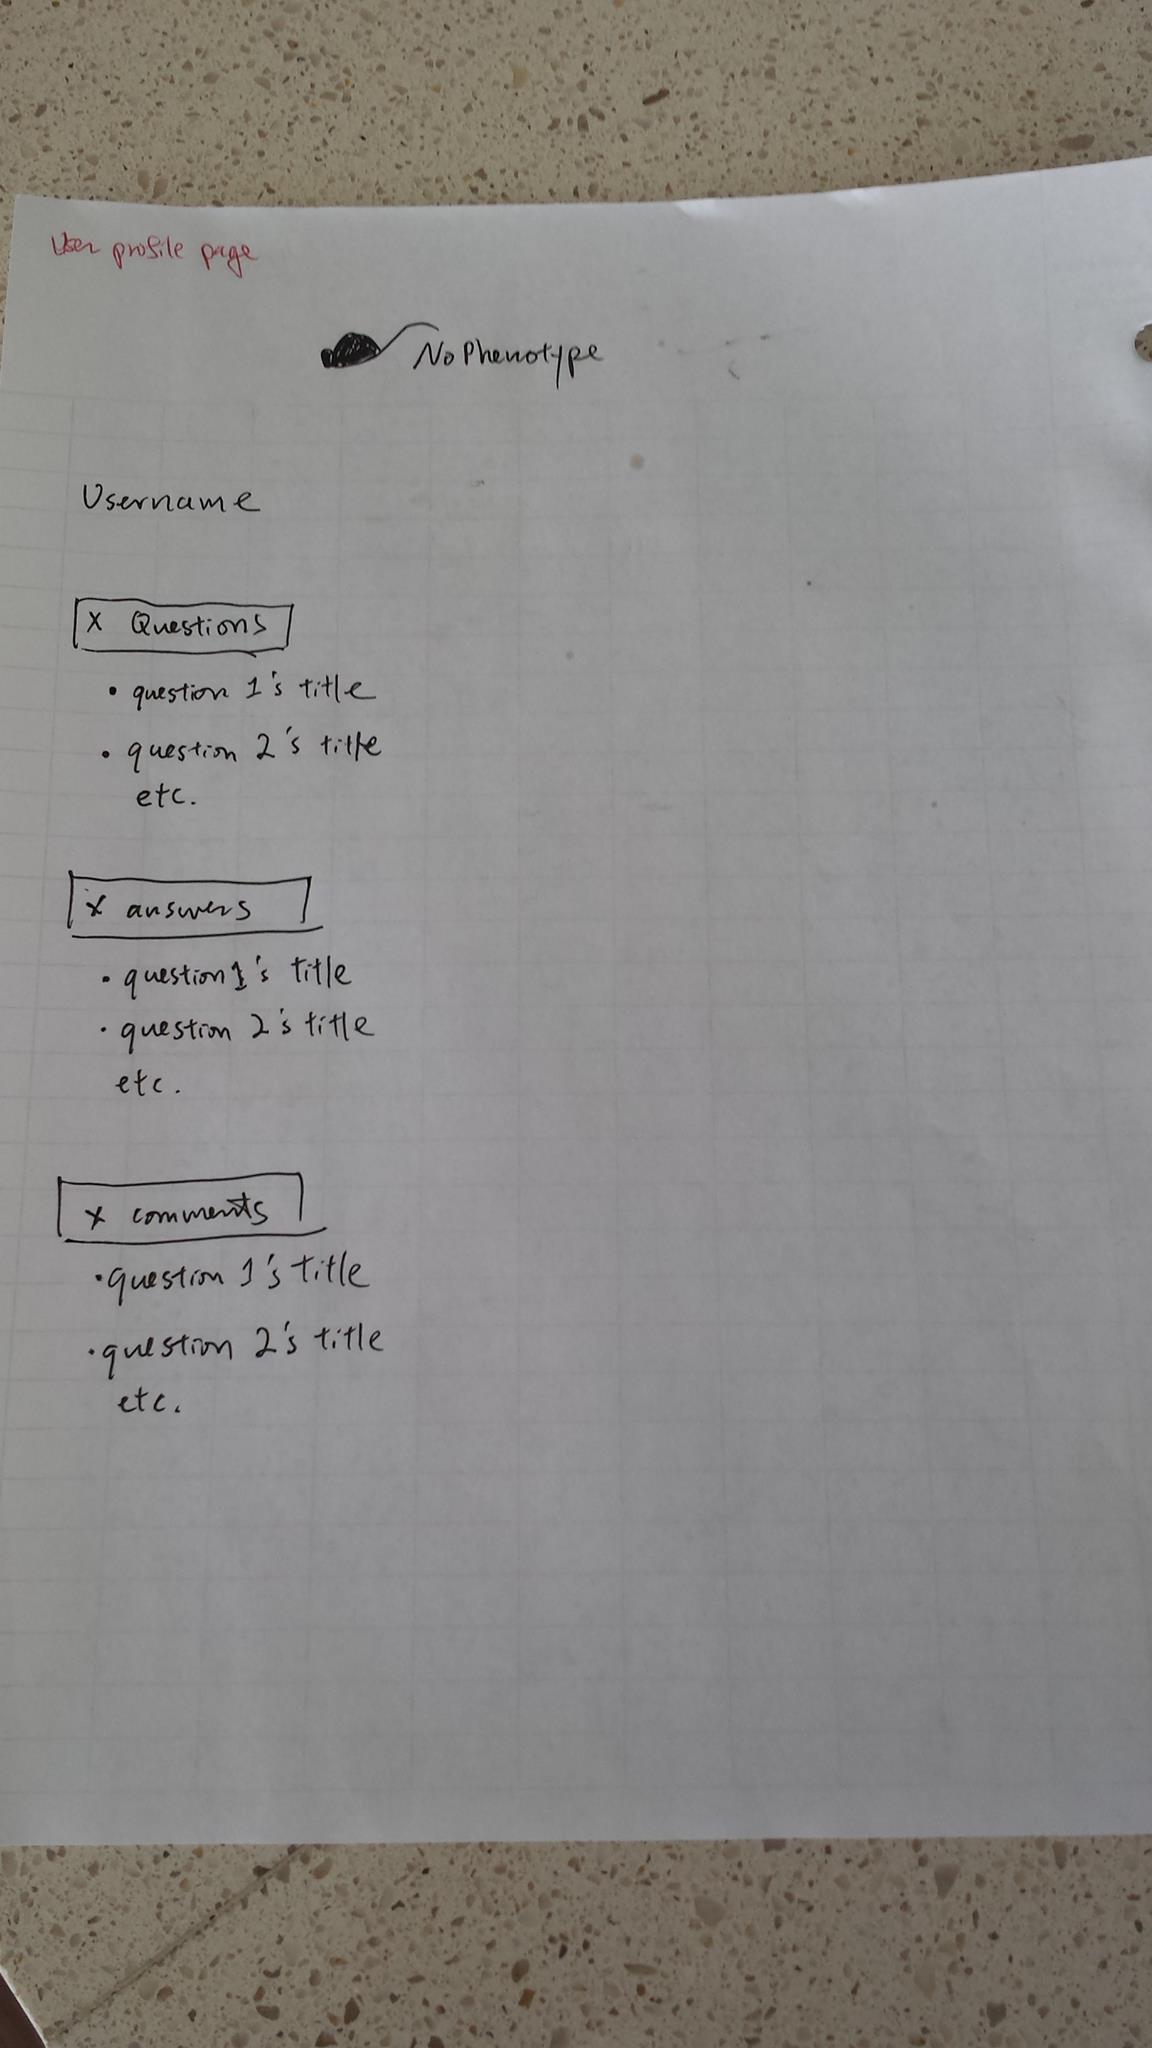 User profile page
NoPhenotype
Username
X Questions
• question 1's title
• question 2's title
etc.
X answers
• question 1's title
• question 2's title
etc.
X comments
• question 1's title
• question 2's title
etc.